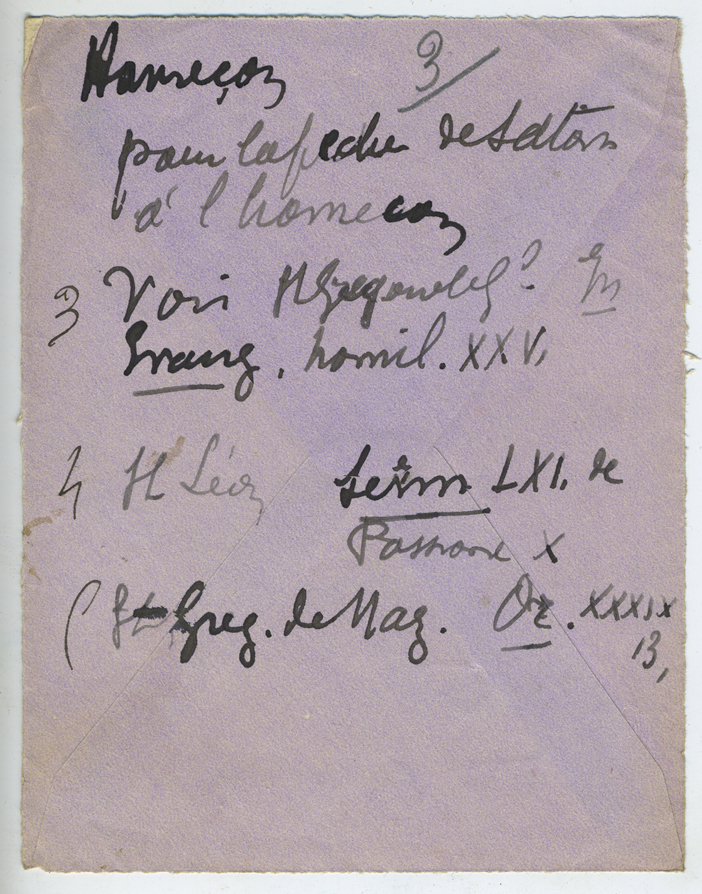 Hameçon 3/
pour la peche de Satan
à l'hameçon
3 Voir St Gregoire ? In
Evang, homil. XXV,
4 St Léon Serm LXI. de
Passione X
( St Greg. de Naz. Or. XXXIX
13,